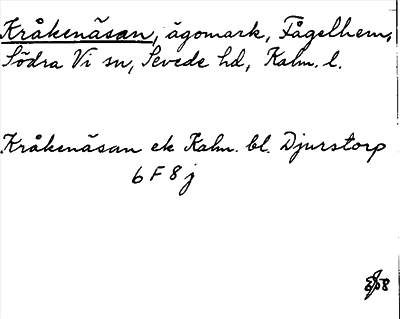 Kråkenäsan, ägomark, Fågelhem,
Södra Vi sn, Sevede hd, Kalm. l.
Kråkenäsan ek Kalm. bl. Djurstorp
6 F 8 j